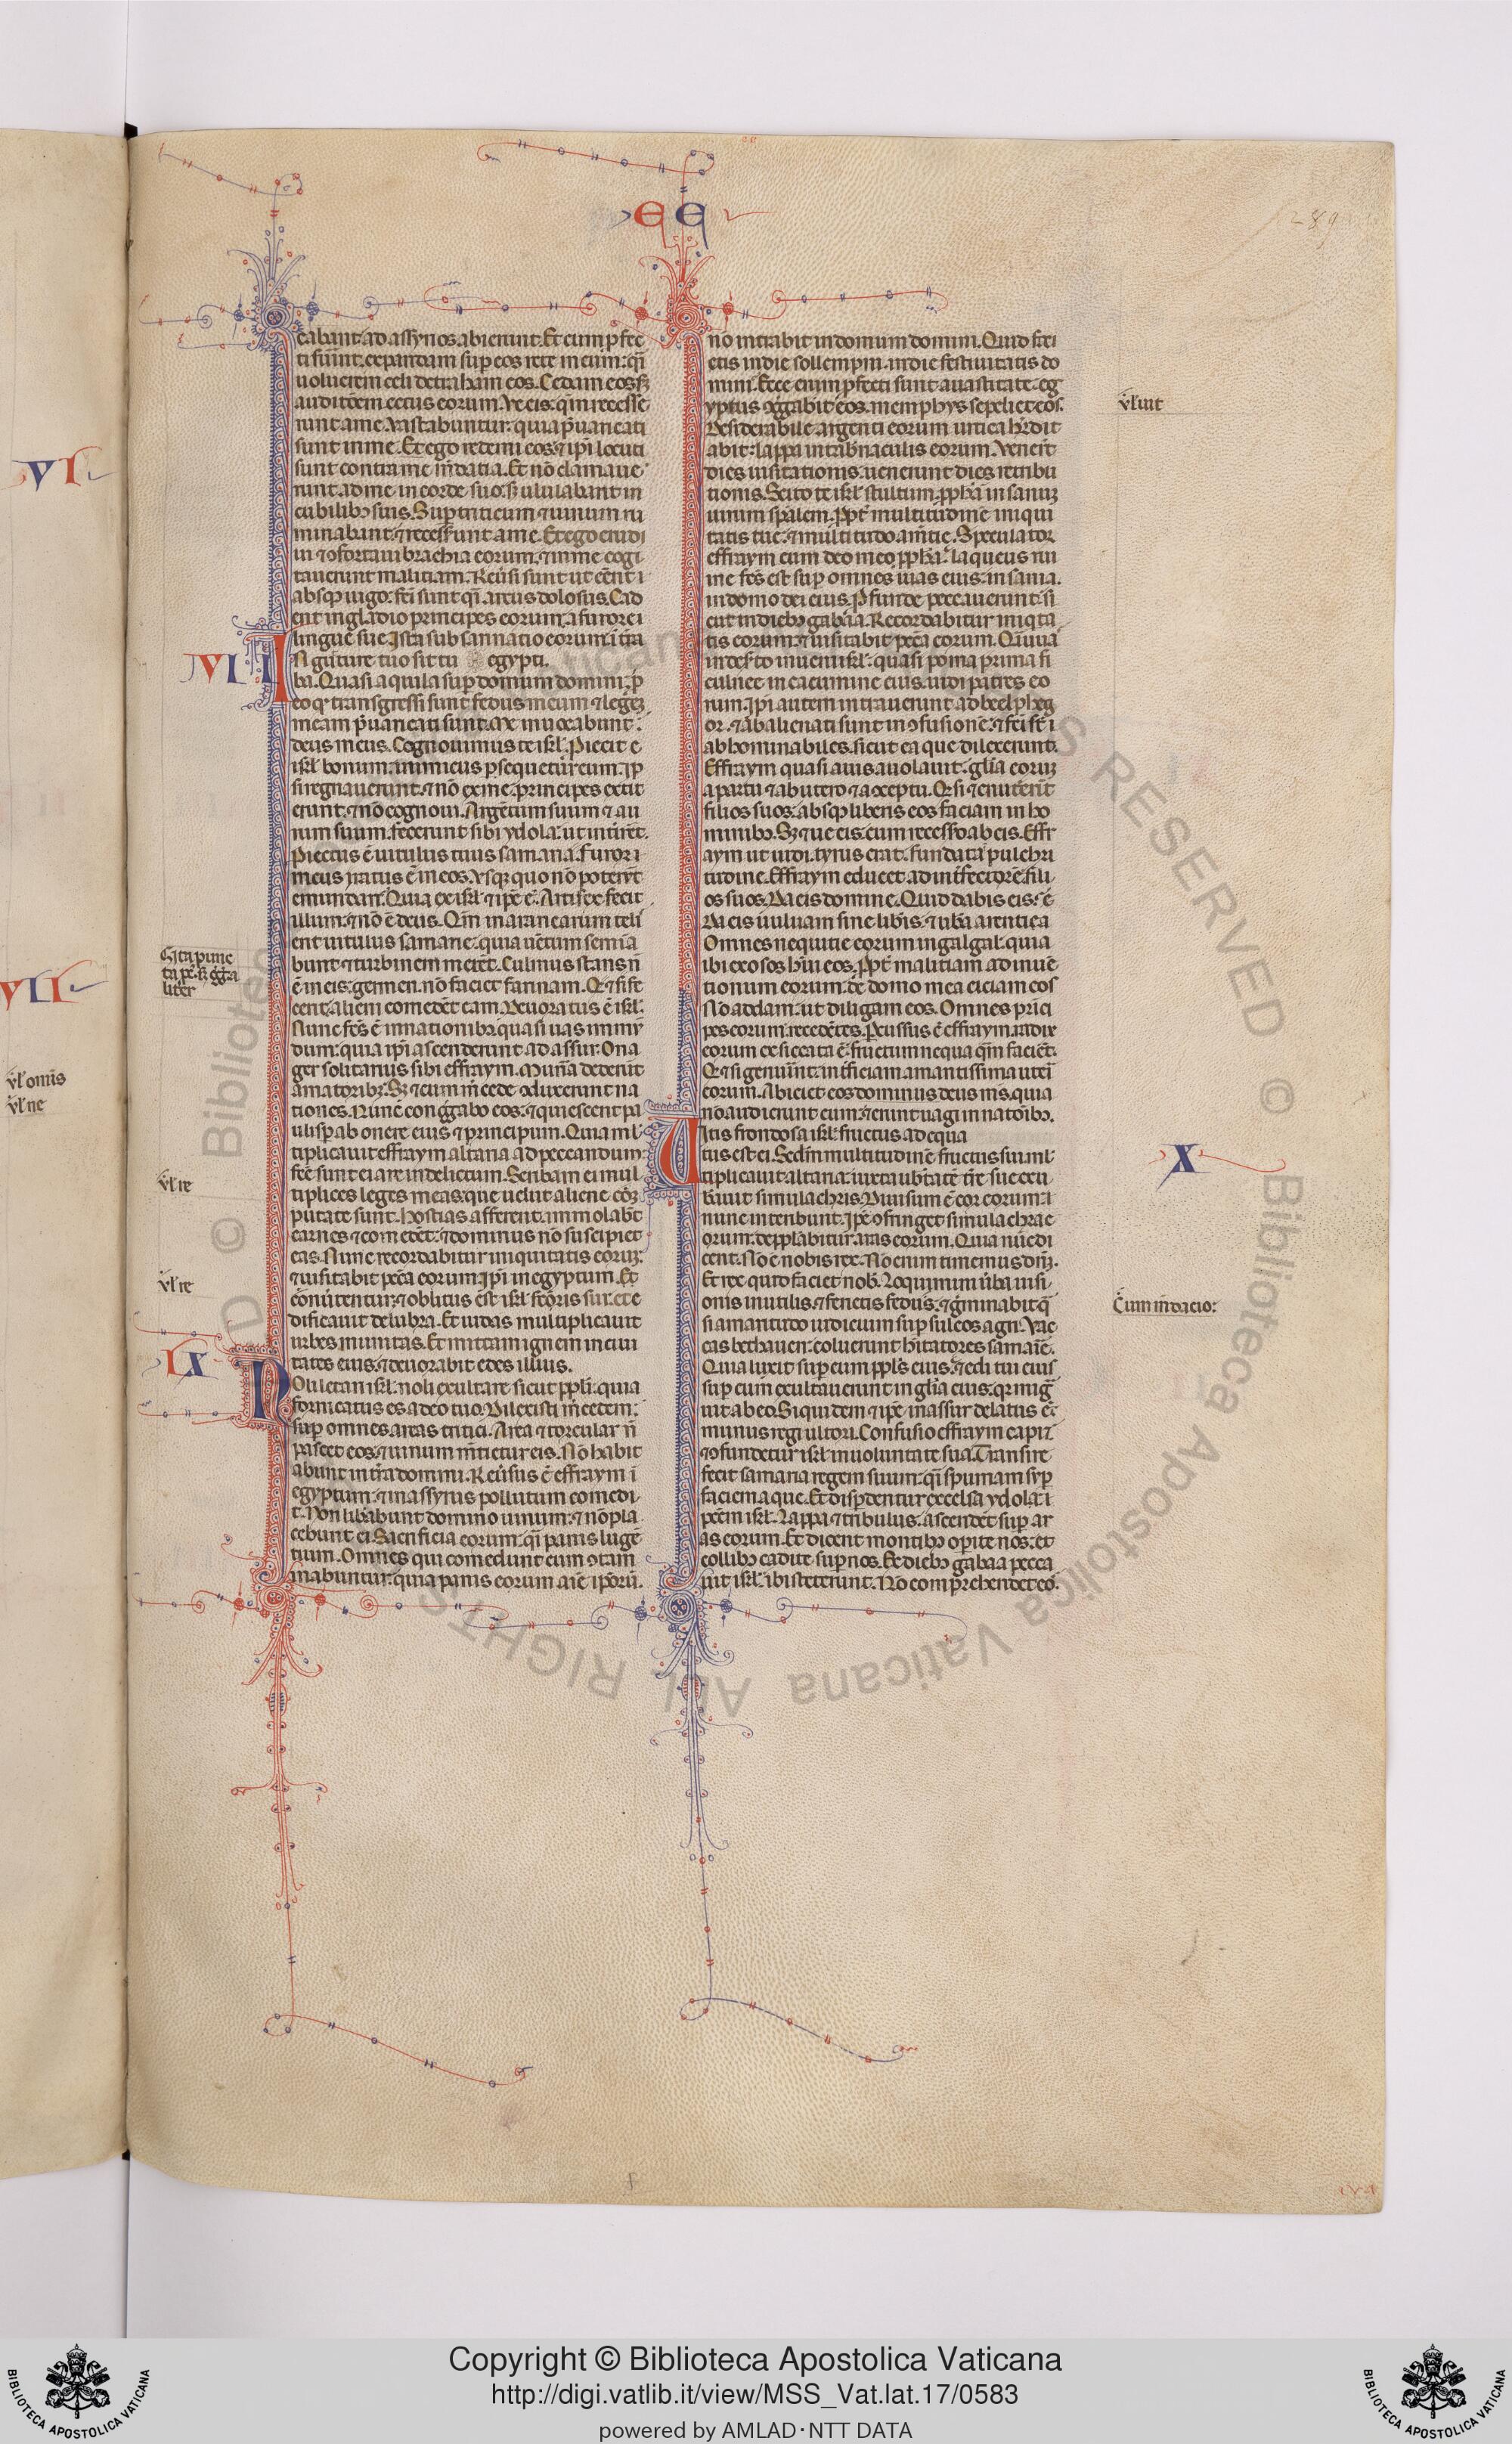 EE
289
cabant. ad assyrios abierunt. Et cum pfec
ti fũint. expandam sup eos rete meum: q̃i
uolucrem celi detraham eos. Cedam eos sȝ
auditõem cetus eorum. Ve eis: q̃m recesse
runt a me. Vastabuntur: quia p̃uaricati
sunt in me. Et ego redemi eos: ⁊ ip̃i locuti
sunt contra me m̃datia. Et nõ clamaue
runt ad me in corde suo. sȝ ululabant in
cubilibȝ suis. Sup triticum ⁊ uinum ru
minabant: ⁊ recesserunt a me. Et ego erudi
ui ⁊ ꝯfortaui brachia eorum: ⁊ in me cogi
tauerunt malitiam. Reũsi sunt ut eẽnt i
absqȝ iugo: fc̃i sunt q̃i arcus dolosus. Cad
ent in gladio principes eorum: a furore i
lingue sue. Ista subsannatio eorum: i t̃ra
egypti.
VIII
IN guture tuo sit tu
ba. Quasi aquila sup domum domini: p
eo qr transgressi sunt fedus meum ⁊ legeȝ
meam p̃uaricati sunt. Me inuocabunt:
deus meus. Cognouimus te isrl̃. Piecit e
isrl̃ bonum: inimicus psequetur eum. Ip
si regnauerunt: ⁊ nõ ex me: principes extit
erunt: ⁊ nõ cognoui. Argẽtum suum ⁊ au
rum suum: fecerunt sibi ydola: ut inti̇rẽt.
Piectus ẽ uitulus tuus samaria. Furor i
meus iratus ẽ in eos. Vsqȝ quo nõ potẽrt
emundari. Quia ex isrl̃ ⁊ ipẽ ẽ. Artifex fecit
illum: ⁊ nõ ẽ deus. Qm̃ in aranearum teli
erit uitulus samarie: quia uẽtum semia
bunt: ⁊ turbinem metẽt. Culmus stans ñ
ẽ in eis: germen. nõ faciet farinam. Qȝ ⁊ si fe
cerit: alieni comedẽt eam. Deuoratus ẽ isrl̃.
Nunc fc̃s ẽ in nationibȝ quasi uas immũ
dum: quia ip̃i ascenderunt ad assur. Ona
ger solitarius sibi effraym. Muñ̃a dederũt
amatoribȝ. Sȝ ⁊ cum m̃cede ꝯduxerunt na
tiones. Nunc congg̃abo eos: ⁊ quiescent pa
ulisp ab onere eius ⁊ principum. Quia ml̃
tiplicauit effraym altaria ad peccandum:
fc̃e sunt ei are in delictum. Scribam ei mul
tiplices leges meas: que uelut aliene cõȝ
putate sunt. Hostias afferent. immolabt̃
carnes ⁊ comedẽt: ⁊ dominus nõ suscipiet
eas. Nunc recordabitur iniquitatis eoruȝ:
⁊ uisitabit pcc̃a eorum. Ip̃i in egyptum. Et
cõnũtentur: ⁊ oblitus est isrl̃ fc̃oris sui. et e
dificauit delubra. Et iudas multiplicauit
urbes munitas. Et mittam ignem in ciui
tates eius: ⁊ deuorabit edes illius.
IX
NOli letari isrl̃: noli exultare sicut ppl̃i: quia
fornicatus es a deo tuo. Dilexisti m̃cedem:
sup omnes areas tritici. Area ⁊ torcular ñ
pascet eos: ⁊ uinum m̃tietur eis. Nõ habit
abunt in t̃ra domini. Reũsus ẽ effraym i
egyptum: ⁊ in assyriis pollutum comedi
t. Non libabunt domino uinum: ⁊ nõ pla
cebunt ei. Sacrificia eorum: q̃i panis lugẽ
tium. Omnes qui comedunt eum ꝯtam
inabuntur: quia panis eorum aĩe ip̃orũ.
nõ intrabit in domum domini. Quid faci
etis in die sollempni: in die festiuitatis do
mini. Ecce enim pfecti sunt a uastitate: eg
yptus ꝯg̃gabit eos. memphys sepeliet eos.
Desiderabile argenti eorum urtica h̃dit
abit: lappa in tab̃naculis eorum. Venert̃
dies uisitationis: uenerunt dies retribu
tionis. Scito te isrl̃ stultum: pph̃a insanuȝ
uirum spãlem. Ppt̃ multitudinẽ iniqui
tatis tue: ⁊ multitudo amẽtie. Speculator
effraym cum deo meo: pph̃a laqueus rui
ine fc̃s est sup omnes uias eius: insania.
in domo dei eius. Pfunde peccauerunt: si
cut in diebȝ gabaa. Recordabitur iniqta
tis eorum: ⁊ uisitabit pcc̃a eorum. Q̃i uua
in desto inueni isrl̃: quasi poma prima fi
culnee in cacumine eius. uidi patres eo
rum. Ip̃i autem intrauerunt ad beelpheg
or. ⁊ abalienati sunt in ꝯfusionẽ: ⁊ fc̃i sr̃t
abhominabiles. sicut ea que dilexerunt.
Effraym quasi auis auolauit: gl̃ia eoruȝ
a partu ⁊ ab utero ⁊ a ꝯceptu. Qȝ si enutriẽrt
filios suos: absqȝ liberis eos faciam in ho
minibȝ. Sȝ ⁊ ue eis. cum recessero ab eis. Effr
aym ut uidi. tyrus erat. fundata i pulchri
tudine. Effraym educet ad int̃fectorẽ. fili
os suos. Da eis domine. Quid dabis eis:
Da eis uuluam sine lib̃is. ⁊ ub̃a arentia
Omnes nequitie eorum in galgal: quia
ibi exosos h̃ui eos. Ppt̃ malitiam ad inuẽ
tionum eorum: de domo mea eiciam eos
Nõ addam: ut diligam eos. Omnes p̃nci
pes eorum: recedẽtes. Pcussus ẽ effraym. radix
eorum exsiccata ẽ: fructum nequaq̃m faciẽt.
Qȝ ⁊ si genuĩnt: int̃ficiam amantissima uteri
eorum. Abiciet eos dominus deus m̃s. quia
nõ audierunt eum: ⁊ erunt uagi in natõibȝ.
X
UItis frondosa isrl̃: fructus adequa
tus est ei. Sedm̃ multitudinẽ fructus sui. ml̃
tiplicauit altaria: iuxta ub̃tatẽ t̃re sue exu
bauit simulachris. Diuisum ẽ cor eorum: i
nunc intribunt. Ip̃e ꝯfringet simulachra e
orum: depplabitur aras eorum. Quia nũc di
cent. Nõ ẽ nobis rex. Nõ enim timemus dñm.
Et rex quid faciet nob̃. Loquimini ũba uisi
onis inutilis. ⁊ ferietis fedus: ⁊ g̃minabit q̃
si amaritudo iudicium sup sulcos agri. Vac
cas bethauen: coluerunt h̃itatores samarie.
Quia luxit sup eum ppl̃s eius: ⁊ editui eius
sup eum exultauerunt in gl̃ia eius: qr mig̃
uit ab eo. Siquidem ⁊ ipẽ in assur delatus ẽ:
munus regi ultori. Confusio effraym capit
⁊ ꝯfundetur isrl̃ in uoluntate sua. Transire
fecit samaria regem suum: q̃i spumam sup
faciem aque. Et dispdentur excelsa ydoli: i
pcc̃m isrl̃. Lappa ⁊ tribulus: ascendet sup ar
as eorum. Et dicent montibȝ opite nos: et
collibȝ cadite sup nos. Ex diebȝ gabaa pecca
uit isrl̃. ibi steterunt. Nõ comprehendet eos.
ũl̃ re
ũl̃ re
ũl̃ uit
Cum m̃dacio:
VI
VII
ũl̃ omĩs
ũl̃ ne
Copyright © Biblioteca Apostolica Vaticana
http://digi.vatlib.it/view/MSS_Vat.lat.17/0583
powered by AMLAD·NTT DATA
BIBLIOTECA APOSTOLICA VATICANA
BIBLIOTECA APOSTOLICA VATICANA